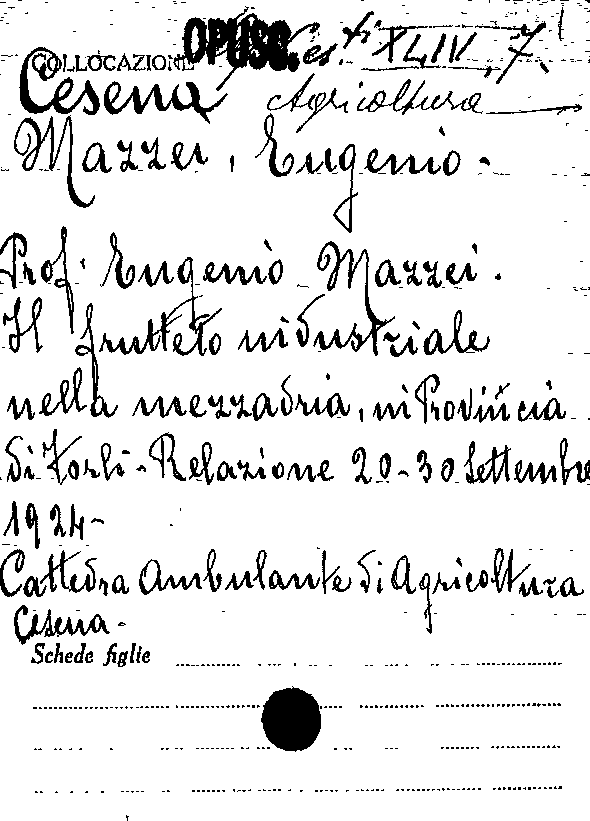 COLLOCAZIONE OPUSC. Ces.ti XLIV, 7.
Cesena Agricoltura
Mazzei, Eugenio.
Prof. Eugenio Mazzei.
Il frutteto industriale
nella mezzadria, in Provincia
di Forlì - Relazione 20-30 Settembre
1924-
Cattedra Ambulante di Agricoltura
Cesena.
Schede figlie